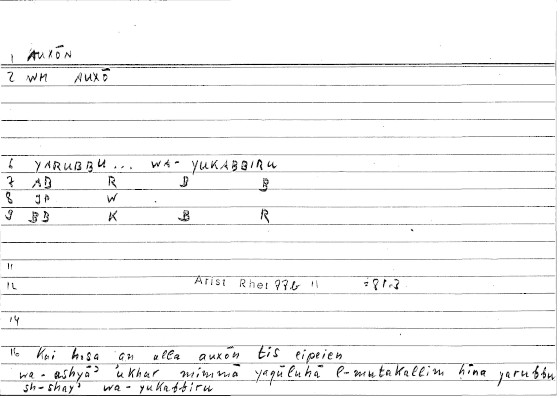 1 AUXŌN
2 WM AUXŌ
6 YARUBBU... WA-YUKABBIRU
7 AB R B B
8 JP W
9 BB K B R
11
12 Arist Rhet 99b 11 =81.3
14
16 Kai hosa an alla auxōn tis eipeien
wa-ashyāʾ ukhar mimmā yaqūluhā l-mutakallim ḥīna yarubbu
sh-shayʾ wa-yukabbiru